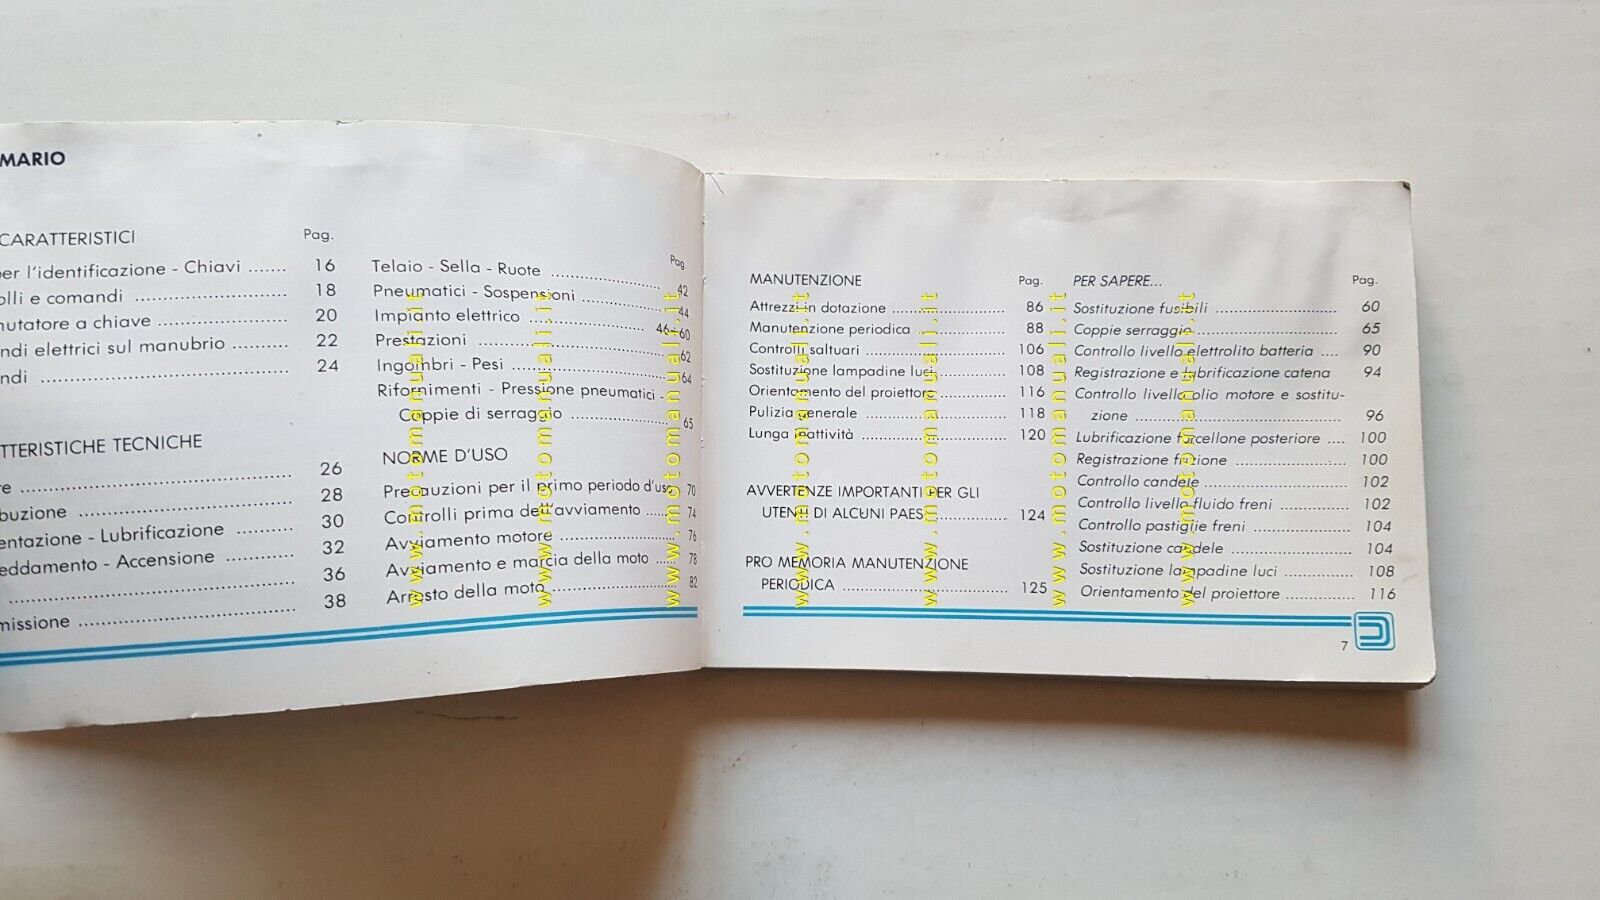 MARIO
CARATTERISTICI Pag.
per l'identificazione - Chiavi ....... 16
olli e comandi ........................ 18
nutatore a chiave .................... 20
ndi elettrici sul manubrio ......... 22
ndi ........................................ 24
TTERISTICHE TECNICHE
re ............................................ 26
buzione ................................... 28
entazione - Lubrificazione ......... 30
eddamento - Accensione ............ 32
................................................ 36
missione .................................. 38
Pag.
Telaio - Sella - Ruote .................. 42
Pneumatici - Sospensioni ............. 44
Impianto elettrico ................. 46-60
Prestazioni ................................ 62
Ingombri - Pesi .......................... 64
Rifornimenti - Pressione pneumatici -
Coppie di serraggio ................ 65
NORME D'USO
Precauzioni per il primo periodo d'uso 70
Controlli prima dell'avviamento ...... 74
Avviamento motore ..................... 76
Avviamento e marcia della moto ...... 78
Arresto della moto ...................... 82
MANUTENZIONE Pag.
Attrezzi in dotazione .................. 86
Manutenzione periodica .............. 88
Controlli saltuari ....................... 106
Sostituzione lampadine luci ......... 108
Orientamento del proiettore ........ 116
Pulizia generale ........................ 118
Lunga inattività ......................... 120
AVVERTENZE IMPORTANTI PER GLI
UTENTI DI ALCUNI PAESI ............ 124
PRO MEMORIA MANUTENZIONE
PERIODICA ............................. 125
PER SAPERE... Pag.
Sostituzione fusibili .................... 60
Coppie serraggio ....................... 65
Controllo livello elettrolito batteria .... 90
Registrazione e lubrificazione catena 94
Controllo livello olio motore e sostitu-
zione ..................................... 96
Lubrificazione forcellone posteriore .... 100
Registrazione frizione ................. 100
Controllo candele ...................... 102
Controllo livello fluido freni .......... 102
Controllo pastiglie freni ............... 104
Sostituzione candele .................. 104
Sostituzione lampadine luci ......... 108
Orientamento del proiettore ......... 116
7
www.motomanuali.it
www.motomanuali.it
www.motomanuali.it
www.motomanuali.it
www.motomanuali.it
www.motomanuali.it
www.motomanuali.it